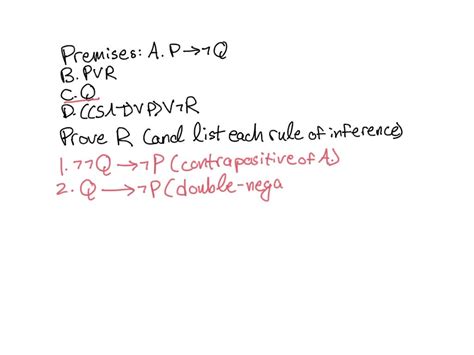 Premises: A. P→¬Q
B. P∨R
C. Q
D. ((S∧T)∨P)∨¬R
Prove R (and list each rule of inference)
1. ¬¬Q→¬P (contrapositive of A.)
2. Q→¬P (double-nega